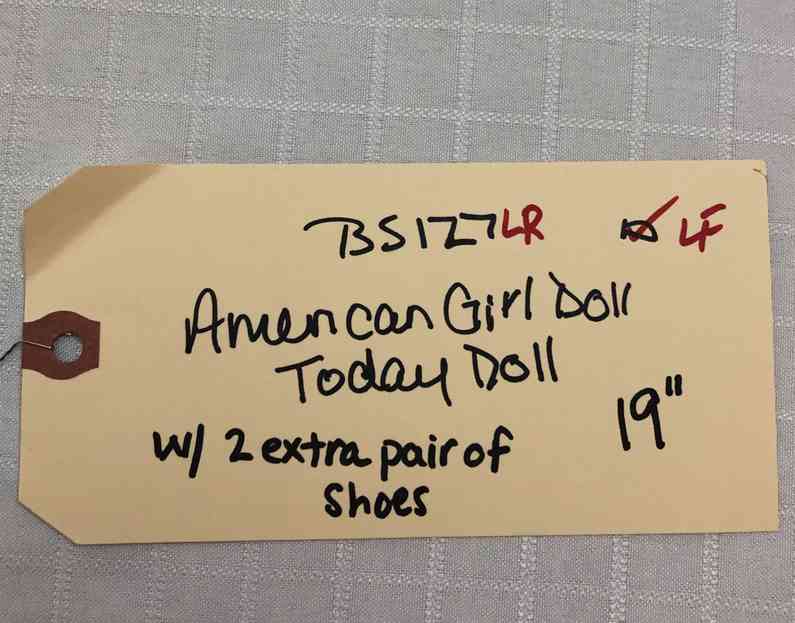 BS127LR ☑ LF
American Girl Doll
Today Doll
19"
w/ 2 extra pair of
shoes